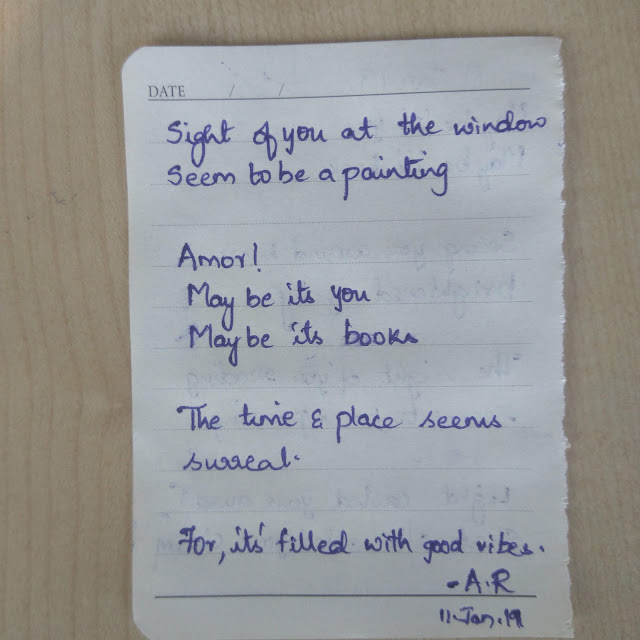 DATE / /
Sight of you at the window
Seem to be a painting
Amor!
May be its you
May be its books
The time & place seems.
surreal.
For, its' filled with good vibes.
- A.R
11.Jan.19